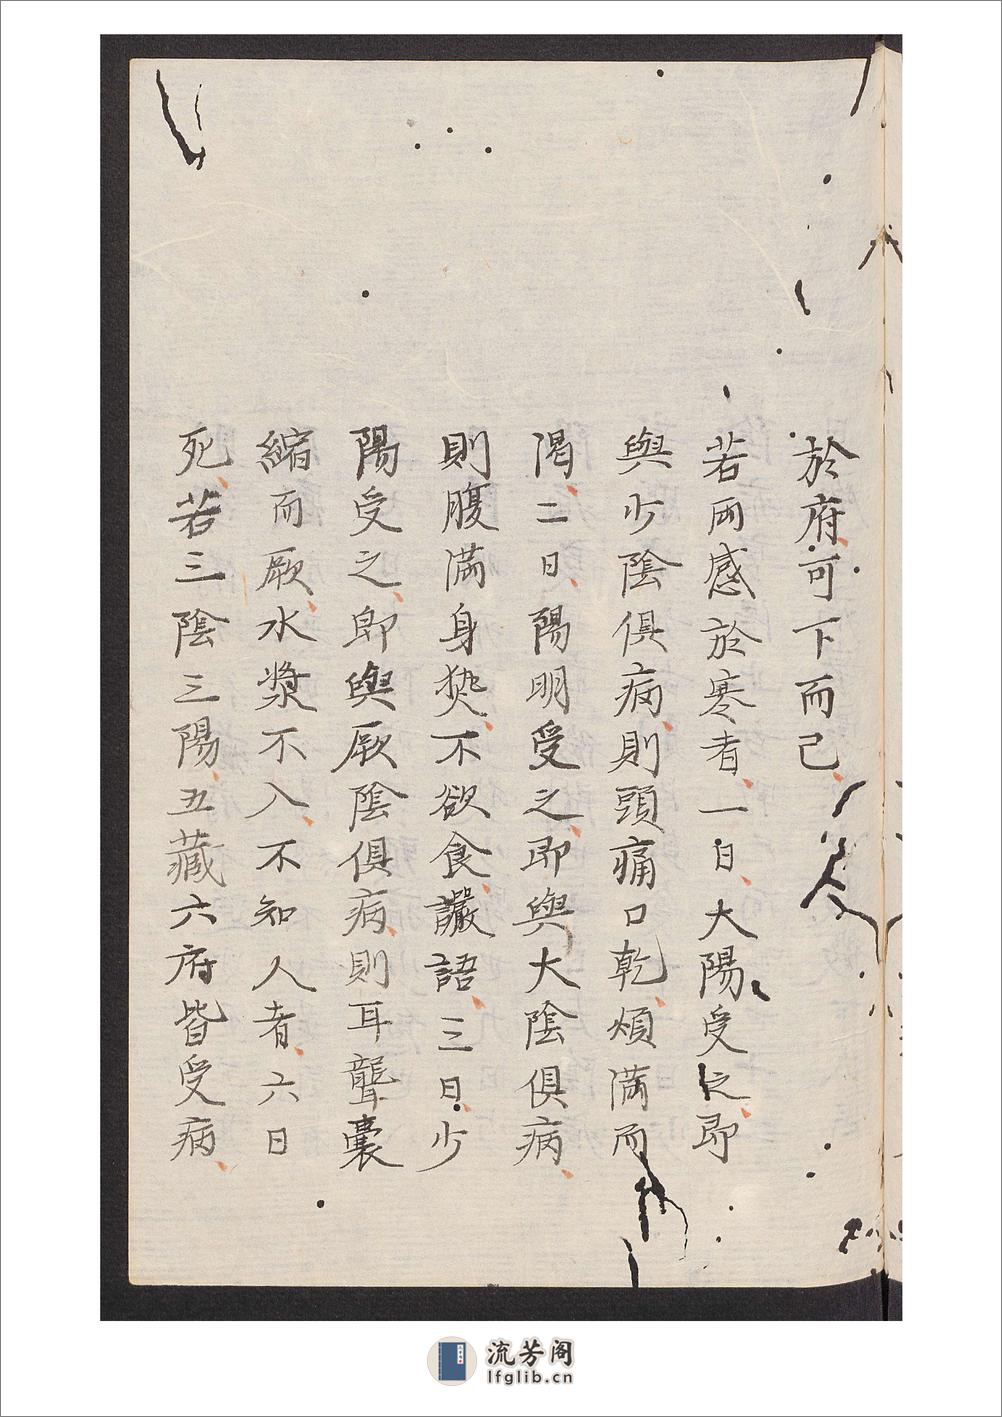 於府可下而已
若両感於寒者一日大陽受之即
與少陰俱病則頭痛口乾煩満而
渇二日陽明受之即與大陰俱病
則腹満身𤍠不欲食讝語三日少
陽受之即與厥陰俱病則耳聾囊
縮而厥水漿不入不知人者六日
死若三陰三陽五藏六府皆受病
流芳阁
lfglib.cn